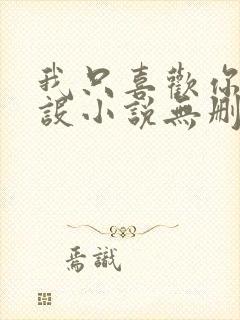 我只喜歡你
設小說無刪
焉識